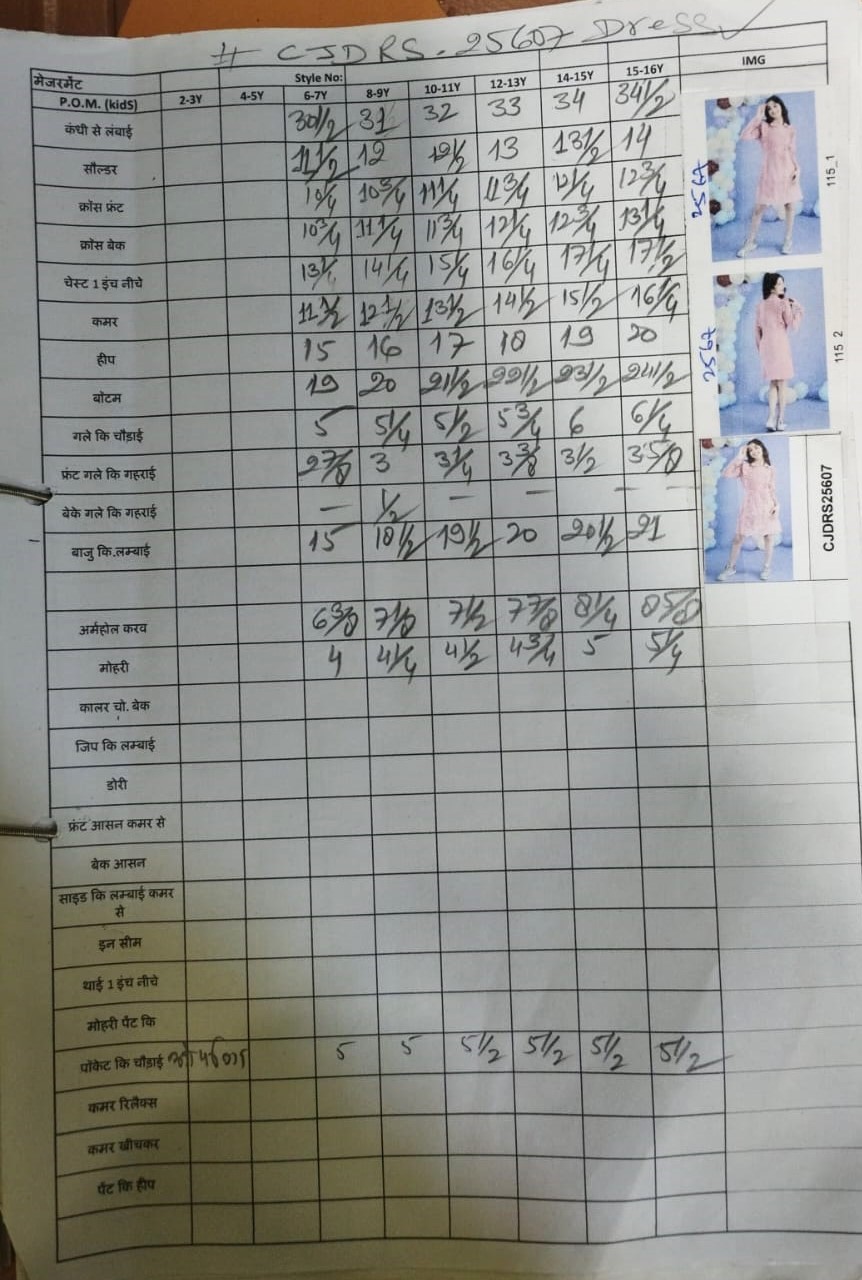 # CJDRS-25607 Dress ✓
मेजरमेंट Style No: IMG
P.O.M. (kidS) 2-3Y 4-5Y 6-7Y 8-9Y 10-11Y 12-13Y 14-15Y 15-16Y
कंधी से लंबाई 30½ 31 32 33 34 34½
सौल्डर 11½ 12 12½ 13 13½ 14
क्रोस फ्रंट 10¼ 10¾ 11¼ 11¾ 12¼ 12¾
क्रोस बेक 10¾ 11¼ 11¾ 12¼ 12¾ 13¼
चेस्ट 1 इंच नीचे 14¼ 15¼ 16¼ 17¼ 17½
कमर 11½ 12½ 13½ 14½ 15½ 16¼
हीप 15 16 17 18 19 20
बोटम 19 20 21½ 22½ 23½ 24½
गले कि चौड़ाई 5 5¼ 5½ 5¾ 6 6¼
फ्रंट गले कि गहराई 2⅞ 3 3¼ 3⅜ 3½ 3⅝
बेके गले कि गहराई — ½ — — — —
बाजु कि.लम्बाई 15 18½ 19½ 20 20½ 21
अर्महोल करव 6⅜ 7⅛ 7½ 7⅞ 8¼ 8⅝
मोहरी 4 4¼ 4½ 4¾ 5 5¼
कालर चो. बेक
जिप कि लम्बाई
डोरी
फ्रंट आसन कमर से
बेक आसन
साइड कि लम्बाई कमर
से
इन सीम
थाई 1 इंच नीचे
मोहरी पेंट कि
पॉकेट कि चौड़ाई 5 5 5½ 5½ 5½ 5½
कमर रिलैक्स
कमर खीचकर
पेंट कि हीप
2567
115_1
2567
115 2
CJDRS25607